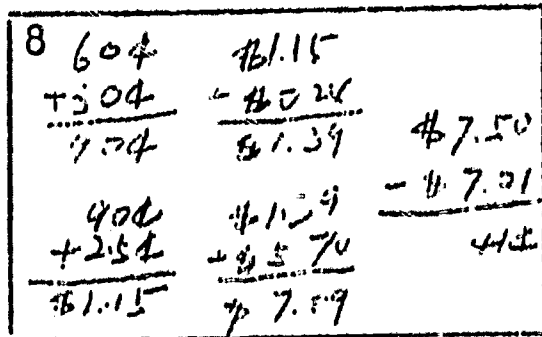 8
60¢
+30¢
90¢
90¢
+25¢
$1.15
$1.15
+ $0.24
$1.39
$1.39
+ $5.70
$7.09
$7.50
41¢